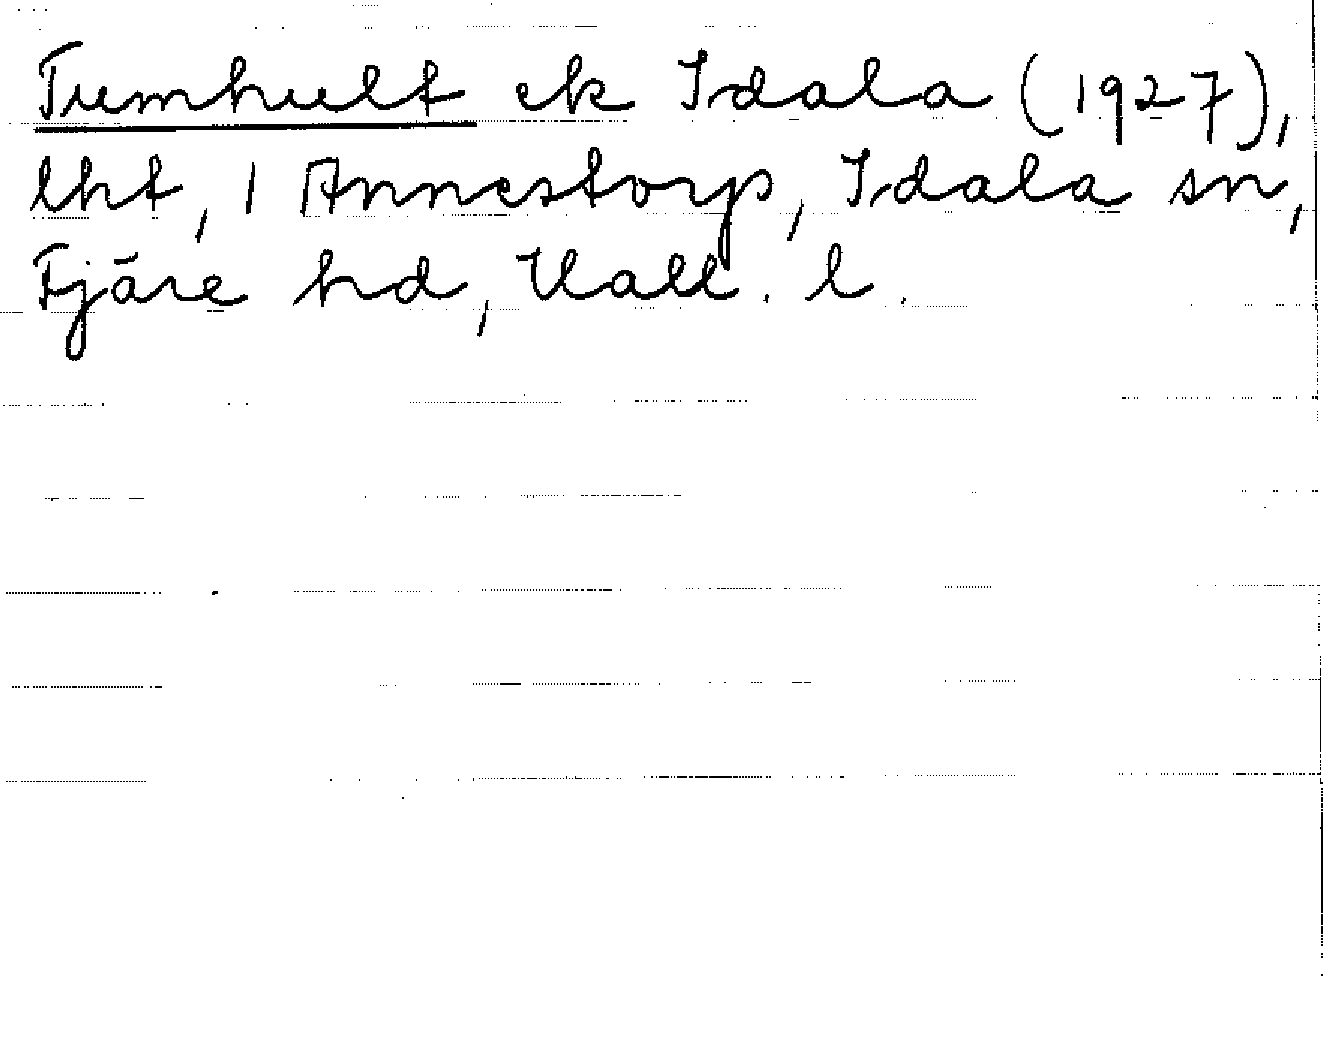 Tumhult ek Idala (1927),
lht, 1 Annestorp, Idala sn,
Fjäre hd, Hall. l.